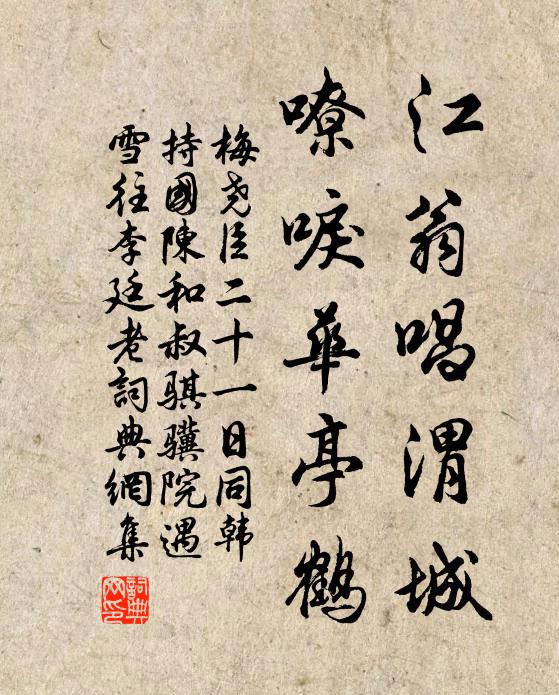 江翁唱渭城
嘹唳華亭鶴
梅尧臣二十一日同韩
持國陳和叔骐驥院遇
雪往李廷老詞典網集
詞典網印